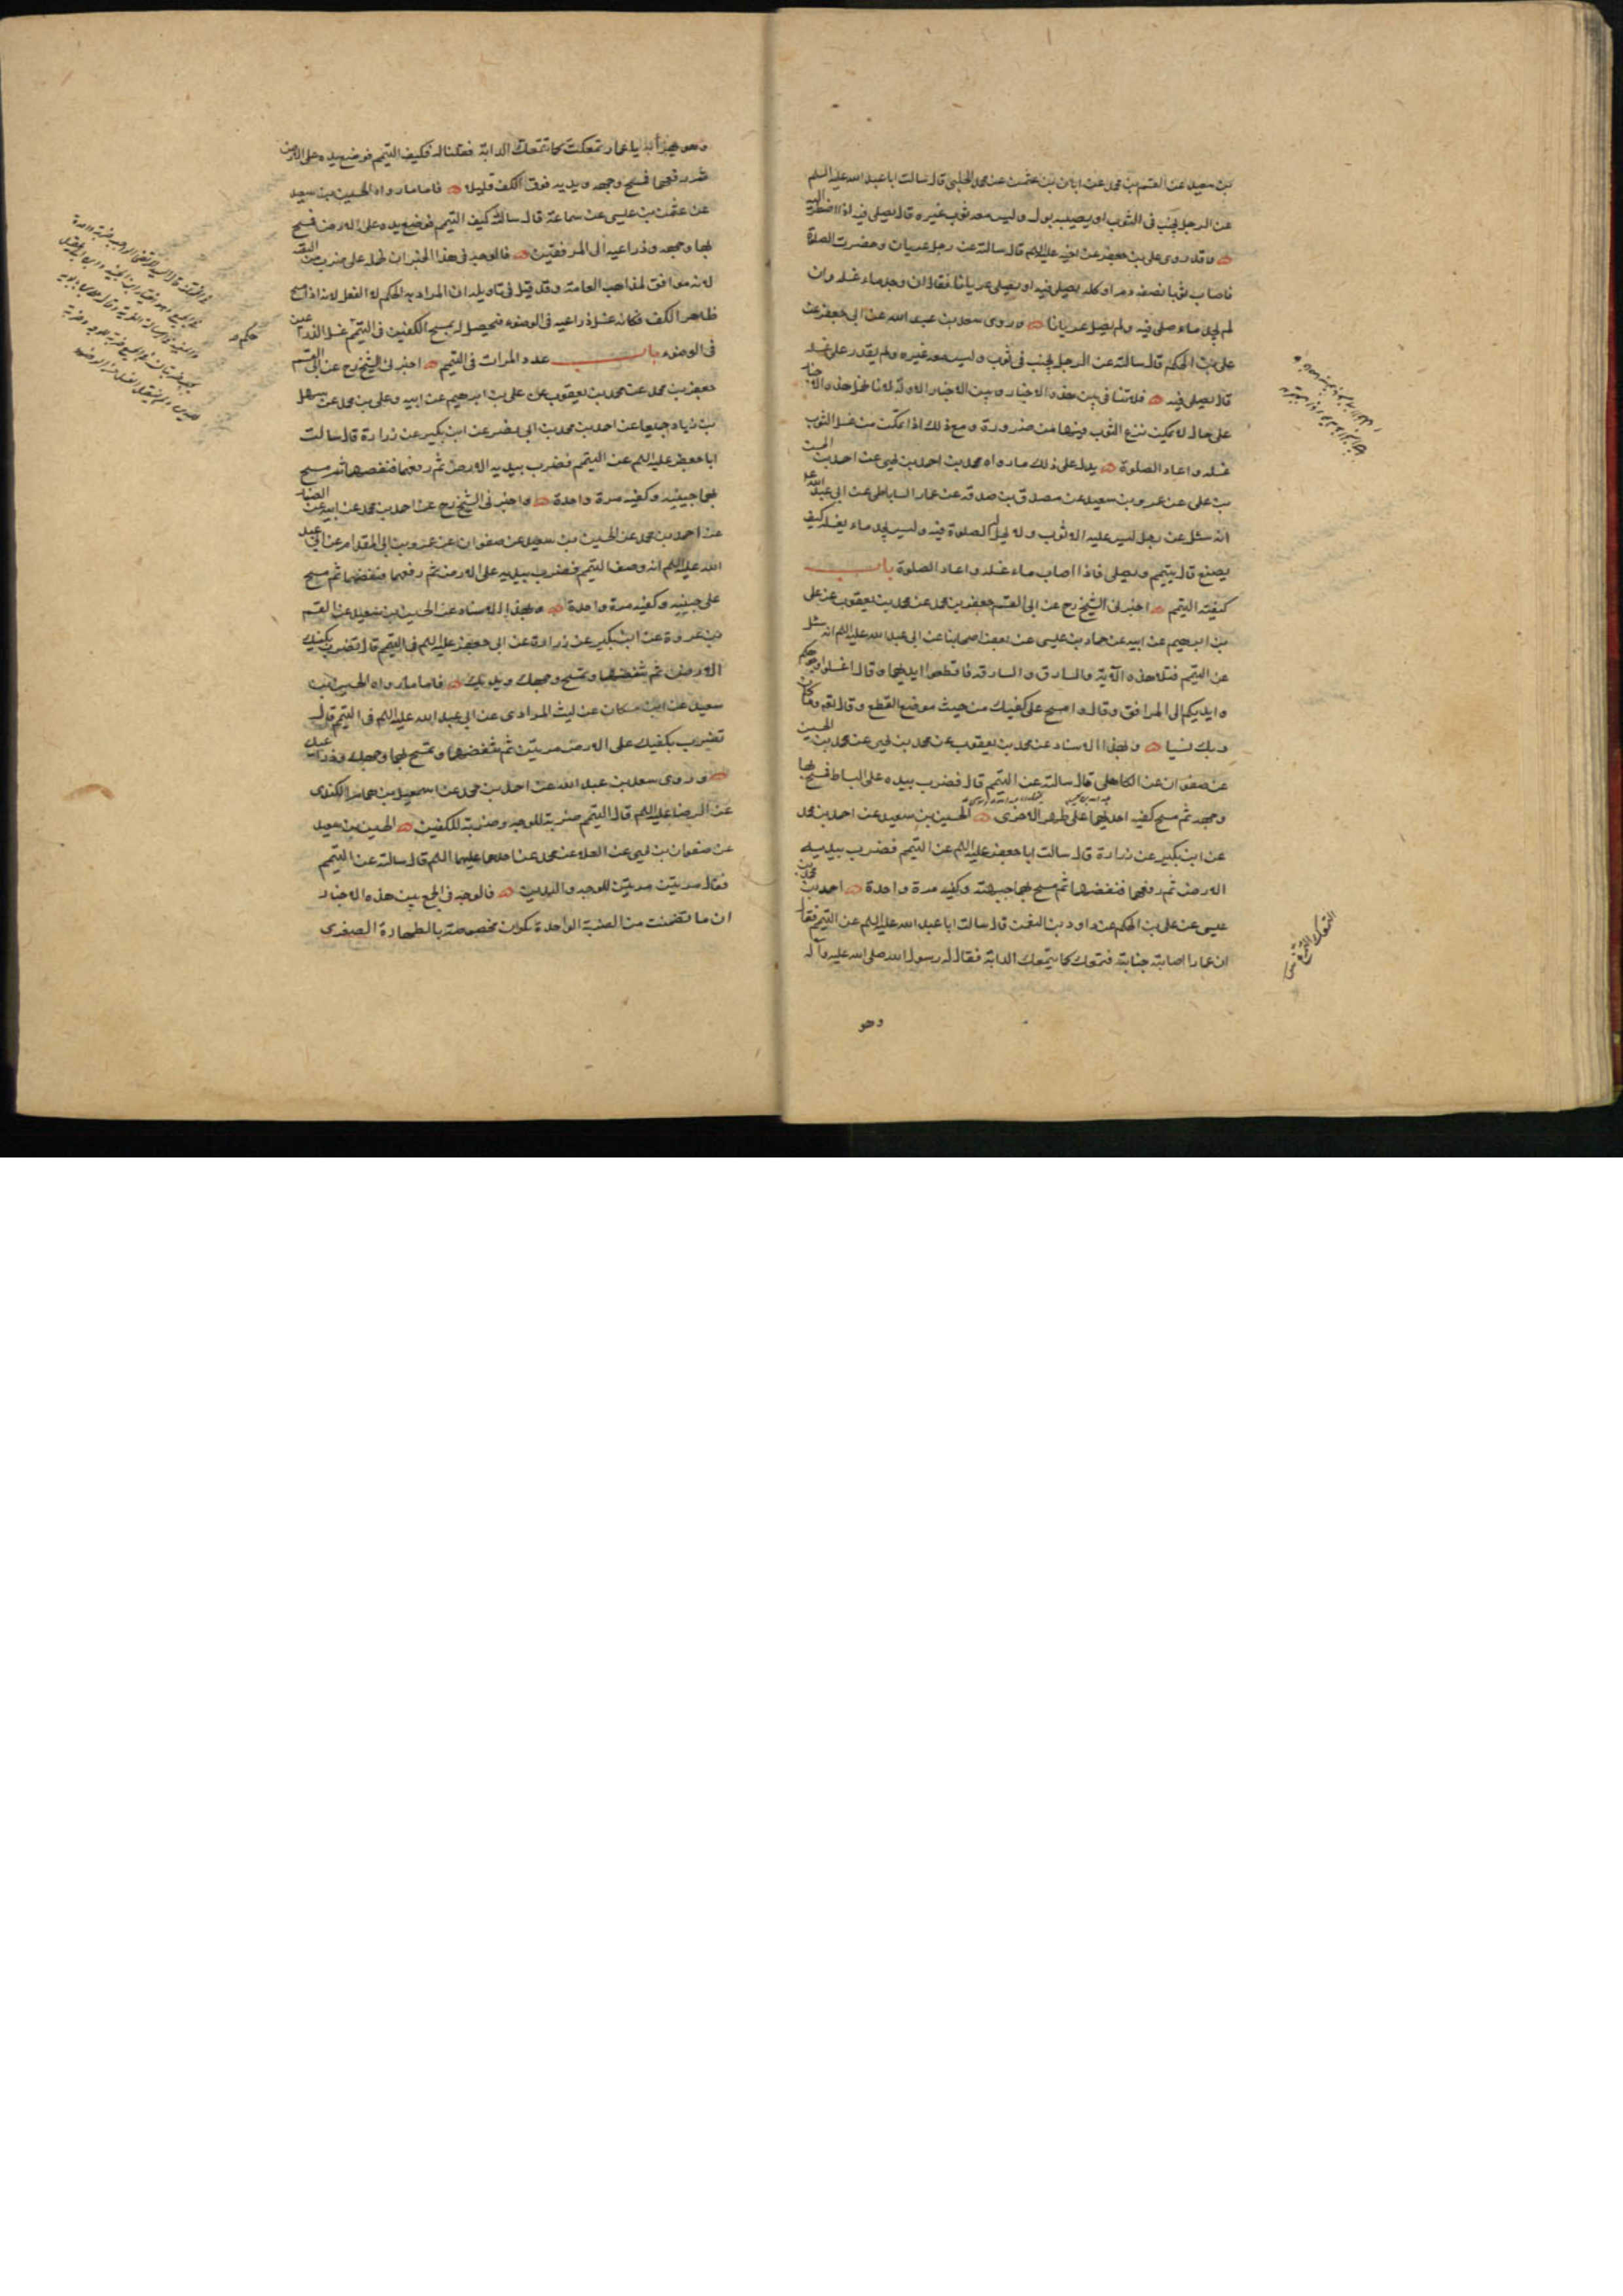 بن سعيد عن القسم بن محمد عن ابان بن عثمن عن محمد الحلبي قال سالت ابا عبد الله عليه السلم
عن الرجل يجنب في الثوب او يصيبه بول وليس معه ثوب غيره قال يصلي فيه اذا اضطر اليه
وقد روى علي بن جعفر عن اخيه عليه السلم قال سالته عن رجل عريان وحضرت الصلوة
فاصاب ثوبا نصفه دم او كله يصلي فيه او يصلي عريانا فقال ان وجد ماء غسله وان
لم يجد ماء صلى فيه ولم يصل عريانا وروى سعد بن عبد الله عن ابي جعفر عن
علي بن الحكم قال سالته عن الرجل يجنب في ثوب وليس معه غيره ولم يقدر على غسله
قال يصلي فيه فلا تنافي بين هذه الاخبار وبين الاخبار الاولة لانا نحمل هذه الاخبار
على حال لا يمكن نزع الثوب فيها من ضرورة ومع ذلك اذا تمكن من غسل الثوب
غسله واعاد الصلوة يدل على ذلك ما رواه محمد بن احمد بن يحيى عن احمد بن الحسن
بن علي عن عمرو بن سعيد عن مصدق بن صدقة عن عمار الساباطي عن ابي عبد الله
انه سئل عن رجل ليس عليه الا ثوب ولا يحل الصلوة فيه وليس يجد ماء يغسله كيف
يصنع قال يتيمم ويصلي فاذا اصاب ماء غسله واعاد الصلوة باب
كيفية التيمم اخبرني الشيخ رح عن ابي القسم جعفر بن محمد عن محمد بن يعقوب عن علي
بن ابرهيم عن ابيه عن حماد بن عيسى عن بعض اصحابنا عن ابي عبد الله عليه السلم انه سئل
عن التيمم فتلا هذه الآية والسارق والسارقة فاقطعوا ايديهما وقال اغسلوا وجوهكم
وايديكم الى المرافق وقال وامسح على كفيك من حيث موضع القطع وقال تعه وما كان
ربك نسيا وبهذا الاسناد عن محمد بن يعقوب عن محمد بن يحيى عن محمد بن الحسين
عن صفوان عن الكاهلي قال سالته عن التيمم قال فضرب بيده على البساط فمسح بها
وجهه ثم مسح كفيه احديهما على ظهر الاخرى الحسين بن سعيد عن احمد بن محمد
عن ابن بكير عن زرارة قال سالت ابا جعفر عليه السلم عن التيمم فضرب بيديه
الارض ثم رفعهما فنفضهما ثم مسح بهما جبهته وكفيه مرة واحدة احمد بن محمد بن
عيسى عن علي بن الحكم عن داود بن النعمن قال سالت ابا عبد الله عليه السلم عن التيمم فقال
ان عمارا اصابته جنابة فتمعك كما يتمعك الدابة فقال له رسول الله صلى الله عليه وآله
وهو
وهو يهزأ به يا عمار تمعكت كما تتمعك الدابة فقلنا له فكيف التيمم فوضع يده على الارض
ثم رفعهما فمسح وجهه ويديه فوق الكف قليلا فاما ما رواه الحسين بن سعيد
عن عثمن بن عيسى عن سماعة قال سالته كيف التيمم فوضع يده على الارض فمسح
بها وجهه وذراعيه الى المرفقين فالوجه في هذا الخبر ان نحمله على ضرب من التقية
لانه موافق لمذاهب العامة وقد قيل في تاويله ان المراد به الحكم لا الفعل لانه اذا مسح
ظاهر الكف فكانه غسل ذراعيه في الوضوء فيحصل له بمسح الكفين في التيمم غسل الذراعين
في الوضوء باب عدد المرات في التيمم اخبرني الشيخ رح عن ابي القسم
جعفر بن محمد عن محمد بن يعقوب عن علي بن ابرهيم عن ابيه وعلي بن محمد عن سهل
بن زياد جميعا عن احمد بن محمد بن ابي نصر عن ابن بكير عن زرارة قال سالت
ابا جعفر عليه السلم عن التيمم فضرب بيديه الارض ثم رفعهما فنفضهما ثم مسح
بهما جبينه وكفيه مرة واحدة واخبرني الشيخ رح عن احمد بن محمد عن ابيه عن الصفار
عن احمد بن محمد عن الحسين بن سعيد عن صفوان عن عمرو بن ابي المقدام عن ابي عبد
الله عليه السلم انه وصف التيمم فضرب بيديه على الارض ثم رفعهما فنفضهما ثم مسح
على جبينه وكفيه مرة واحدة وبهذا الاسناد عن الحسين بن سعيد عن القسم
بن عروة عن ابن بكير عن زرارة عن ابي جعفر عليه السلم في التيمم قال تضرب بكفيك
الارض ثم تنفضهما وتمسح وجهك ويديك فاما ما رواه الحسين بن
سعيد عن ابن مسكان عن ليث المرادي عن ابي عبد الله عليه السلم في التيمم قال
تضرب بكفيك على الارض مرتين ثم تنفضهما وتمسح بهما وجهك وذراعيك
وروى سعد بن عبد الله عن احمد بن محمد عن اسمعيل بن همام الكندي
عن الرضا عليه السلم قال التيمم ضربة للوجه وضربة للكفين الحسين بن سعيد
عن صفوان بن يحيى عن العلا عن محمد عن احدهما عليهما السلم قال سالته عن التيمم
فقال مرتين مرتين للوجه واليدين فالوجه في الجمع بين هذه الاخبار
ان ما تضمنت من الضربة الواحدة يكون مخصوصة بالطهارة الصغرى